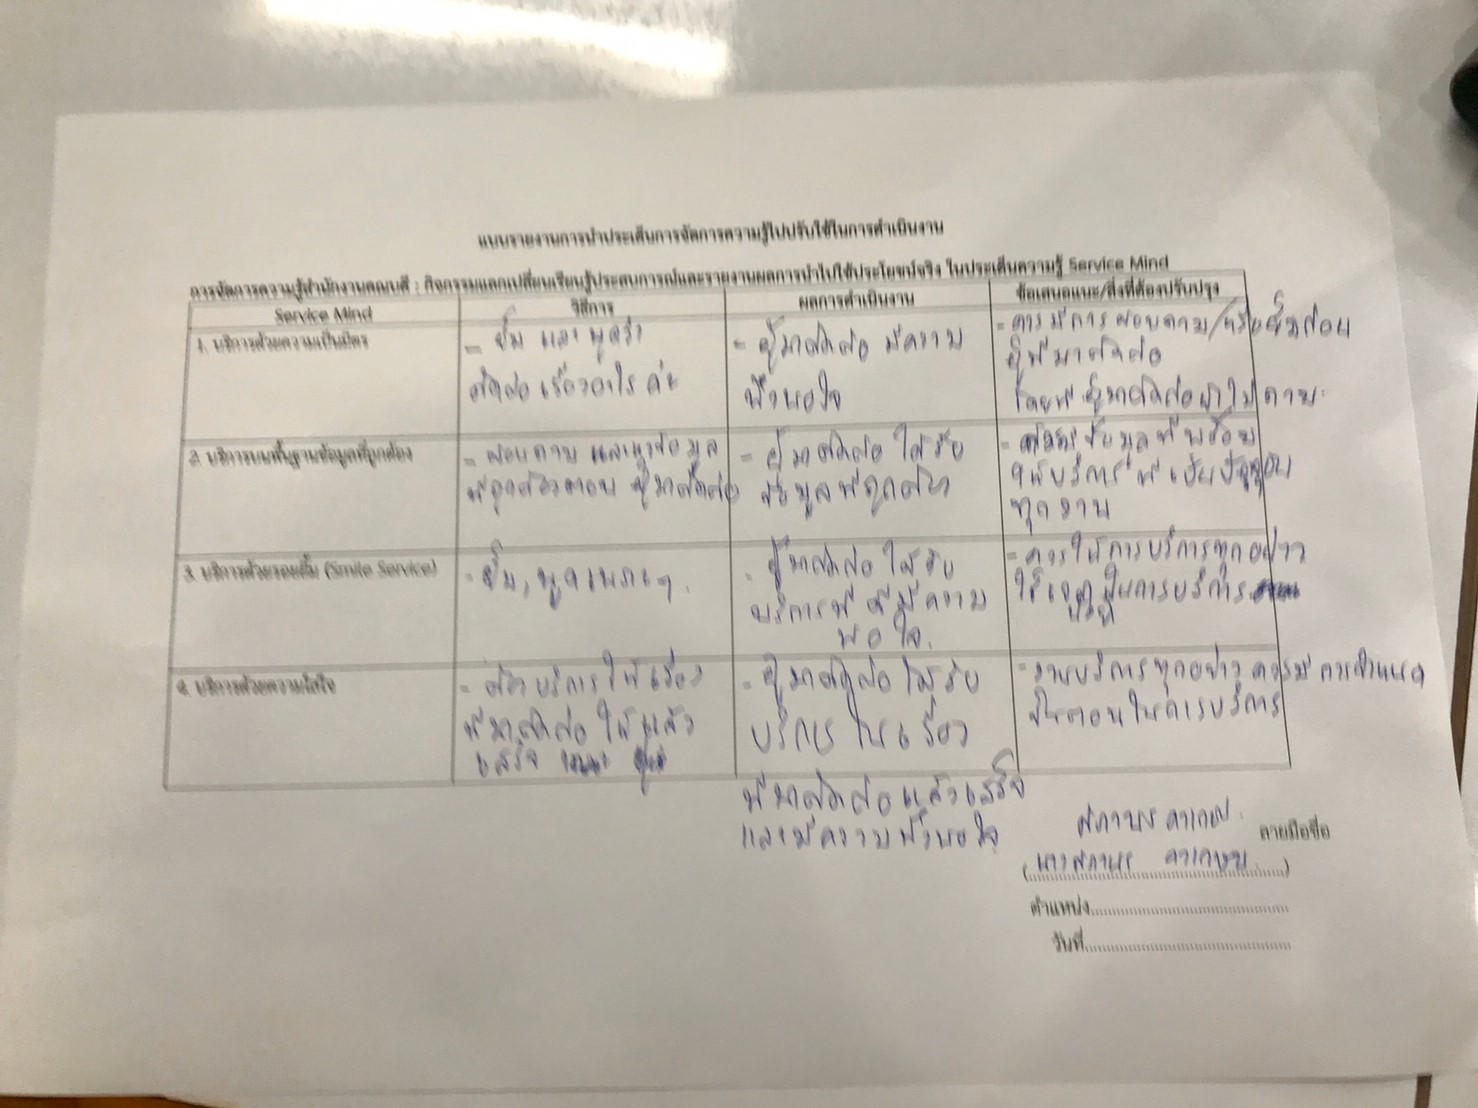 แบบรายงานการนำประเด็นการจัดการความรู้ไปปรับใช้ในการดำเนินงาน
การจัดการความรู้สำนักงานคณบดี : กิจกรรมแลกเปลี่ยนเรียนรู้ประสบการณ์และรายงานผลการนำไปใช้ประโยชน์จริง ในประเด็นความรู้ Service Mind
Service Mind
วิธีการ
ผลการดำเนินงาน
ข้อเสนอแนะ/สิ่งที่ต้องปรับปรุง
1. บริการด้วยความเป็นมิตร
- ยิ้ม และ พูดว่า
ติดต่อ เรื่องอะไร ค่ะ
- ผู้มาติดต่อ มีความ
พึงพอใจ
- ควรมีการสอบถาม/หรือยิ้มก่อน
ผู้ที่มาติดต่อ
โดยที่ ผู้มาติดต่อ ไม่ ถาม
2. บริการบนพื้นฐานข้อมูลที่ถูกต้อง
- สอบถาม และหาข้อมูล
ที่ถูกต้องตอบ ผู้มาติดต่อ
- ผู้มาติดต่อ ได้รับ
ข้อมูลที่ถูกต้อง
- ข้อมูลที่พร้อม
ให้บริการ ที่เป็นปัจจุบัน
ทุกงาน
3. บริการด้วยรอยยิ้ม (Smile Service)
- ยิ้ม, พูดเพราะๆ
- ผู้มาติดต่อ ได้รับ
บริการที่ ดีมีความ
พอใจ.
- ควรให้การบริการทุกอย่าง
ในการบริการ
4. บริการด้วยความใส่ใจ
- ต้องบริการ ให้เรื่อง
ที่มาติดต่อ ให้แล้ว
เสร็จ
- ผู้มาติดต่อ ได้รับ
บริการ ในเรื่อง
ที่มาติดต่อแล้วเสร็จ
และมีความพึงพอใจ
- งานบริการทุกอย่าง ควรมี การกำหนด
ขั้นตอนในการบริการ
ลายมือชื่อ
(....................)
ตำแหน่ง....................
วันที่....................